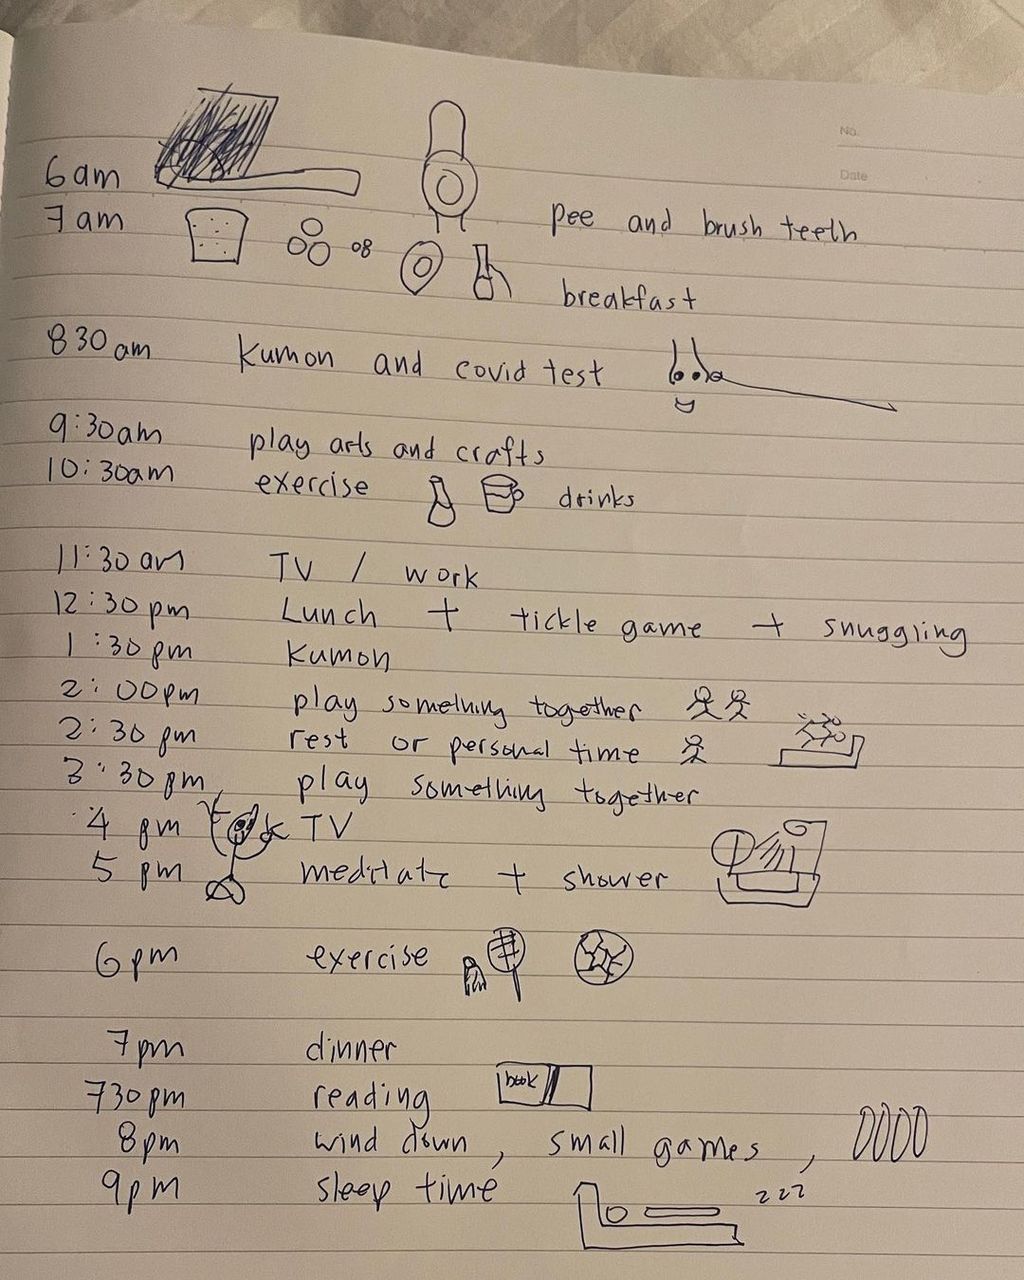 No.
Date
6am pee and brush teeth
7am breakfast
830am Kumon and covid test
9:30am play arts and crafts
10:30am exercise drinks
11:30am TV / work
12:30pm Lunch + tickle game + snuggling
1:30pm Kumon
2:00pm play something together
2:30pm rest or personal time
3:30pm play something together
4pm TV
5pm meditate + shower
6pm exercise
7pm dinner
730pm reading book
8pm wind down, small games,
9pm sleep time zzz